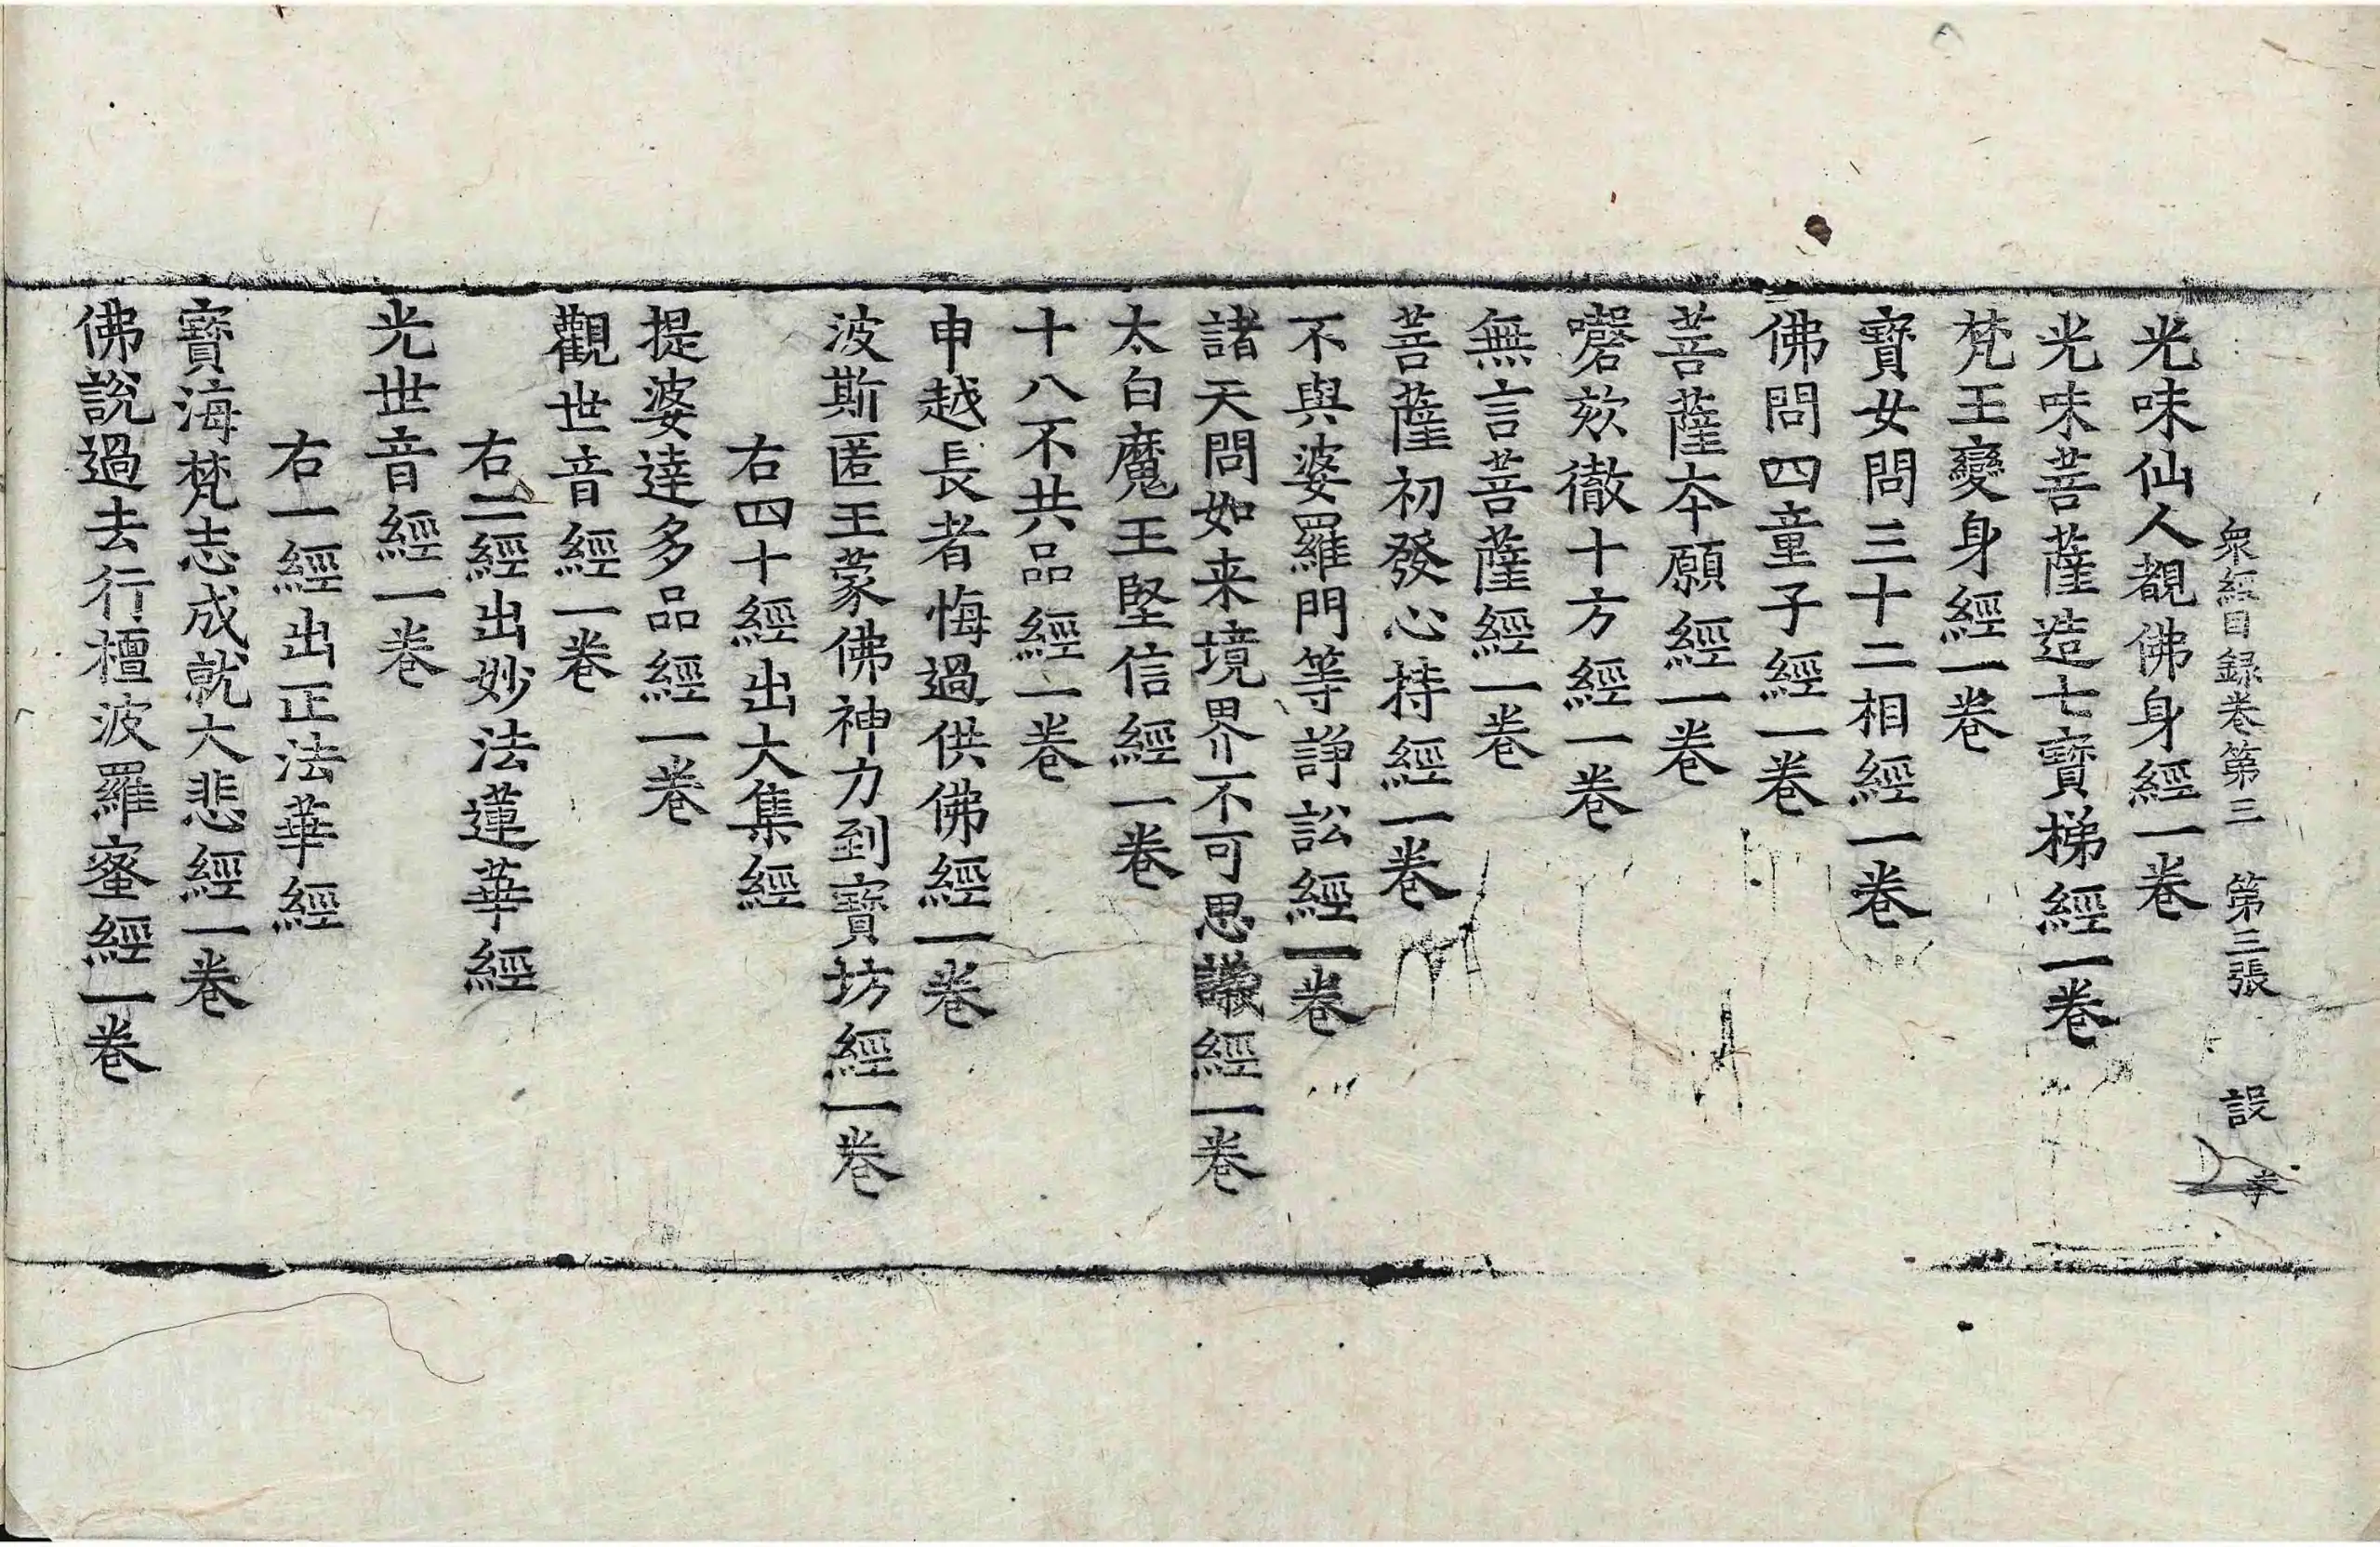 衆經目録卷第三　第三張　設
光味仙人覩佛身經一卷
光味菩薩造七寶梯經一卷
梵王變身經一卷
寶女問三十二相經一卷
佛問四童子經一卷
菩薩夲願經一卷
磬欬徹十方經一卷
無言菩薩經一卷
菩薩初發心持經一卷
不與婆羅門等諍訟經一卷
諸天問如来境界不可思議經一卷
太白魔王堅信經一卷
十八不共品經一卷
申越長者悔過供佛經一卷
波斯匿王蒙佛神力到寶坊經一卷
右四十經出大集經
提婆達多品經一卷
觀世音經一卷
右二經出妙法蓮華經
光世音經一卷
右一經出正法華經
寶海梵志成就大悲經一卷
佛說過去行檀波羅蜜經一卷